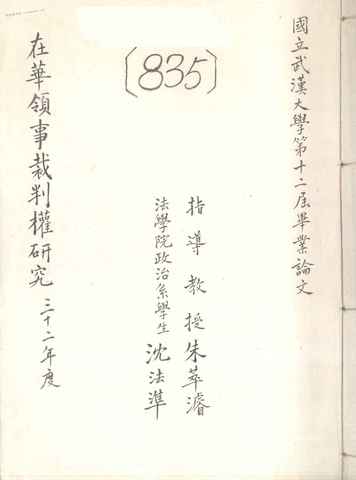 國立武漢大學第十二屆畢業論文
〔835〕
指導教授朱萃濬
法學院政治系學生沈法準
在華領事裁判權研究 三十二年度